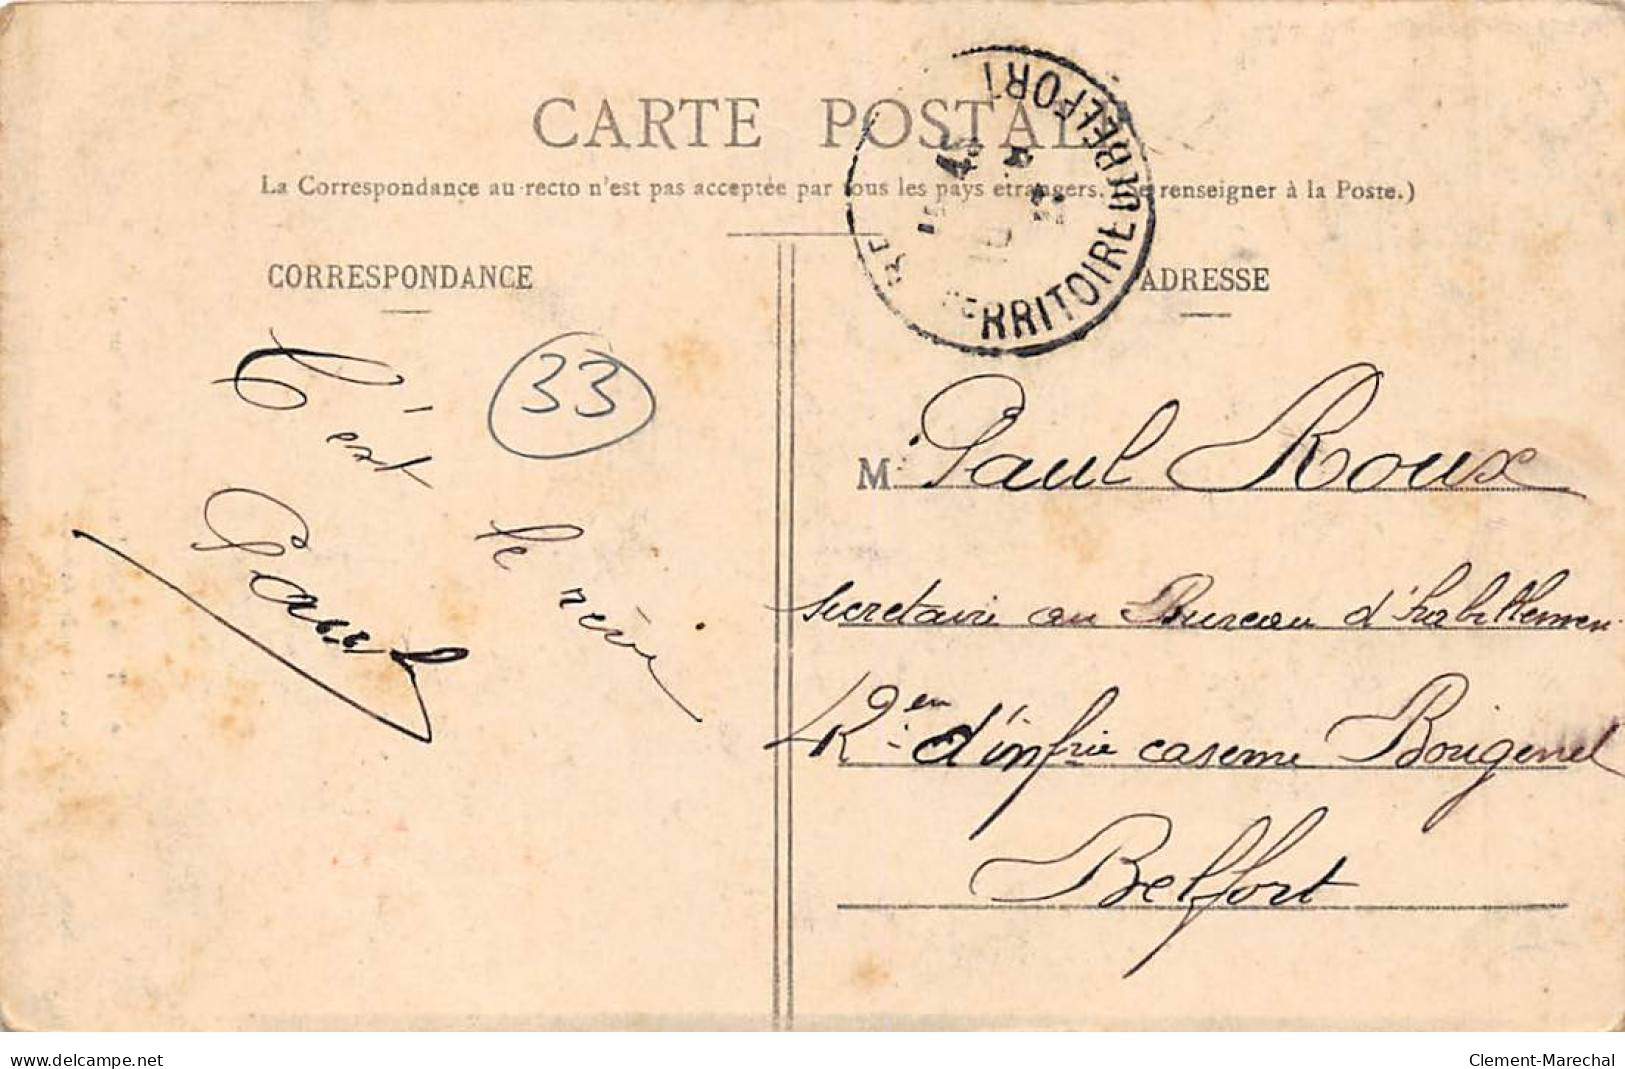 CARTE POSTALE
La Correspondance au recto n'est pas acceptée par tous les pays étrangers. (Se renseigner à la Poste.)
TERRITOIRE DE BELFORT
CORRESPONDANCE
33
C'est
le
Paul
ADRESSE
M Paul Roux
secretaire au Bureau d'habillemen
42 em d'infrie caserne Bougenel
Belfort
www.delcampe.net
Clement-Marechal